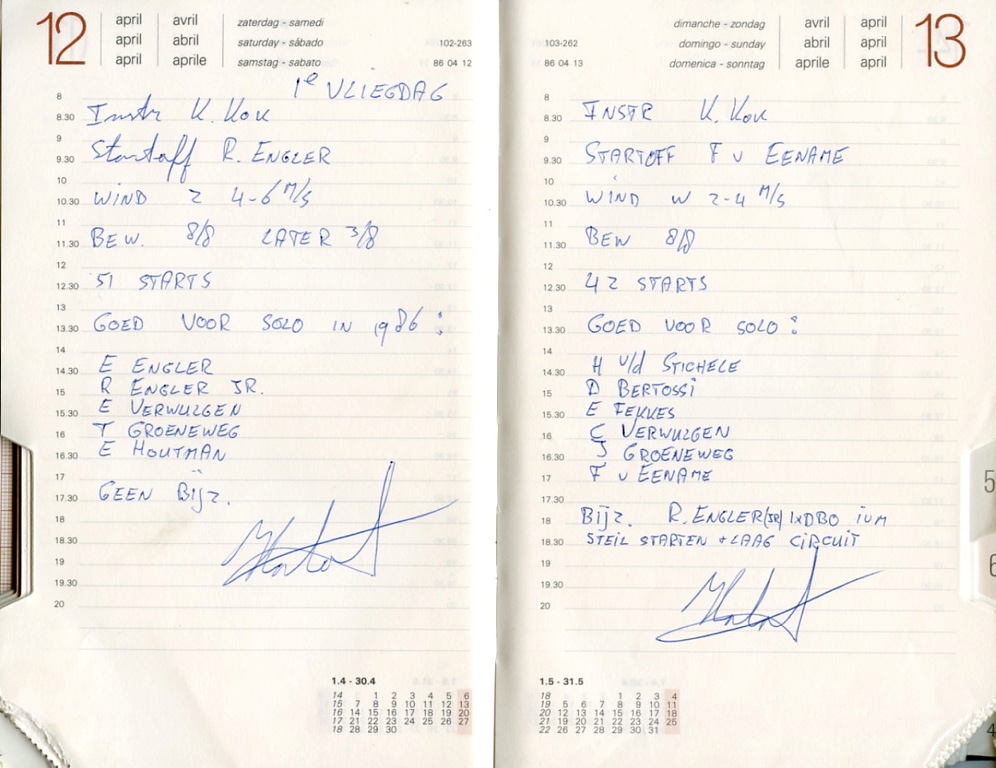 12
april avril zaterdag - samedi
april abril saturday - sábado 102-263
april aprile samstag - sabato 86 04 12
1e VLIEGDAG
8
8.30 Instr K. Kok
9
9.30 Startoff R. ENGLER
10
10.30 WIND Z 4-6 M/S
11
11.30 BEW. 8/8 LATER 3/8
12
12.30 51 STARTS
13
13.30 GOED VOOR SOLO IN 1986 :
14
14.30 E ENGLER
15 R ENGLER JR.
15.30 E VERWIJZEN
16 T GROENEWEG
16.30 E HOUTMAN
17
17.30 GEEN BIJZ.
18
18.30
19
19.30
20
1.4 - 30.4
14 1 2 3 4 5 6
15 7 8 9 10 11 12 13
16 14 15 16 17 18 19 20
17 21 22 23 24 25 26 27
18 28 29 30
dimanche - zondag avril april
103-262 domingo - sunday abril april
86 04 13 domenica - sonntag aprile april
13
8
8.30 INSTR K. Kok
9
9.30 STARTOFF F v EENAME
10
10.30 WIND W 2-4 M/S
11
11.30 BEW 8/8
12
12.30 42 STARTS
13
13.30 GOED VOOR SOLO :
14
14.30 H v/d STICHELE
15 D BERTOSSI
15.30 E FEKKES
16 C VERWIJZEN
16.30 J GROENEWEG
17 F v EENAME
17.30
18 BIJZ. R. ENGLER (JR) 1xDBO IVM
18.30 STEIL STARTEN + LAAG CIRCUIT
19
19.30
20
1.5 - 31.5
18 1 2 3 4
19 5 6 7 8 9 10 11
20 12 13 14 15 16 17 18
21 19 20 21 22 23 24 25
22 26 27 28 29 30 31
5
6
4